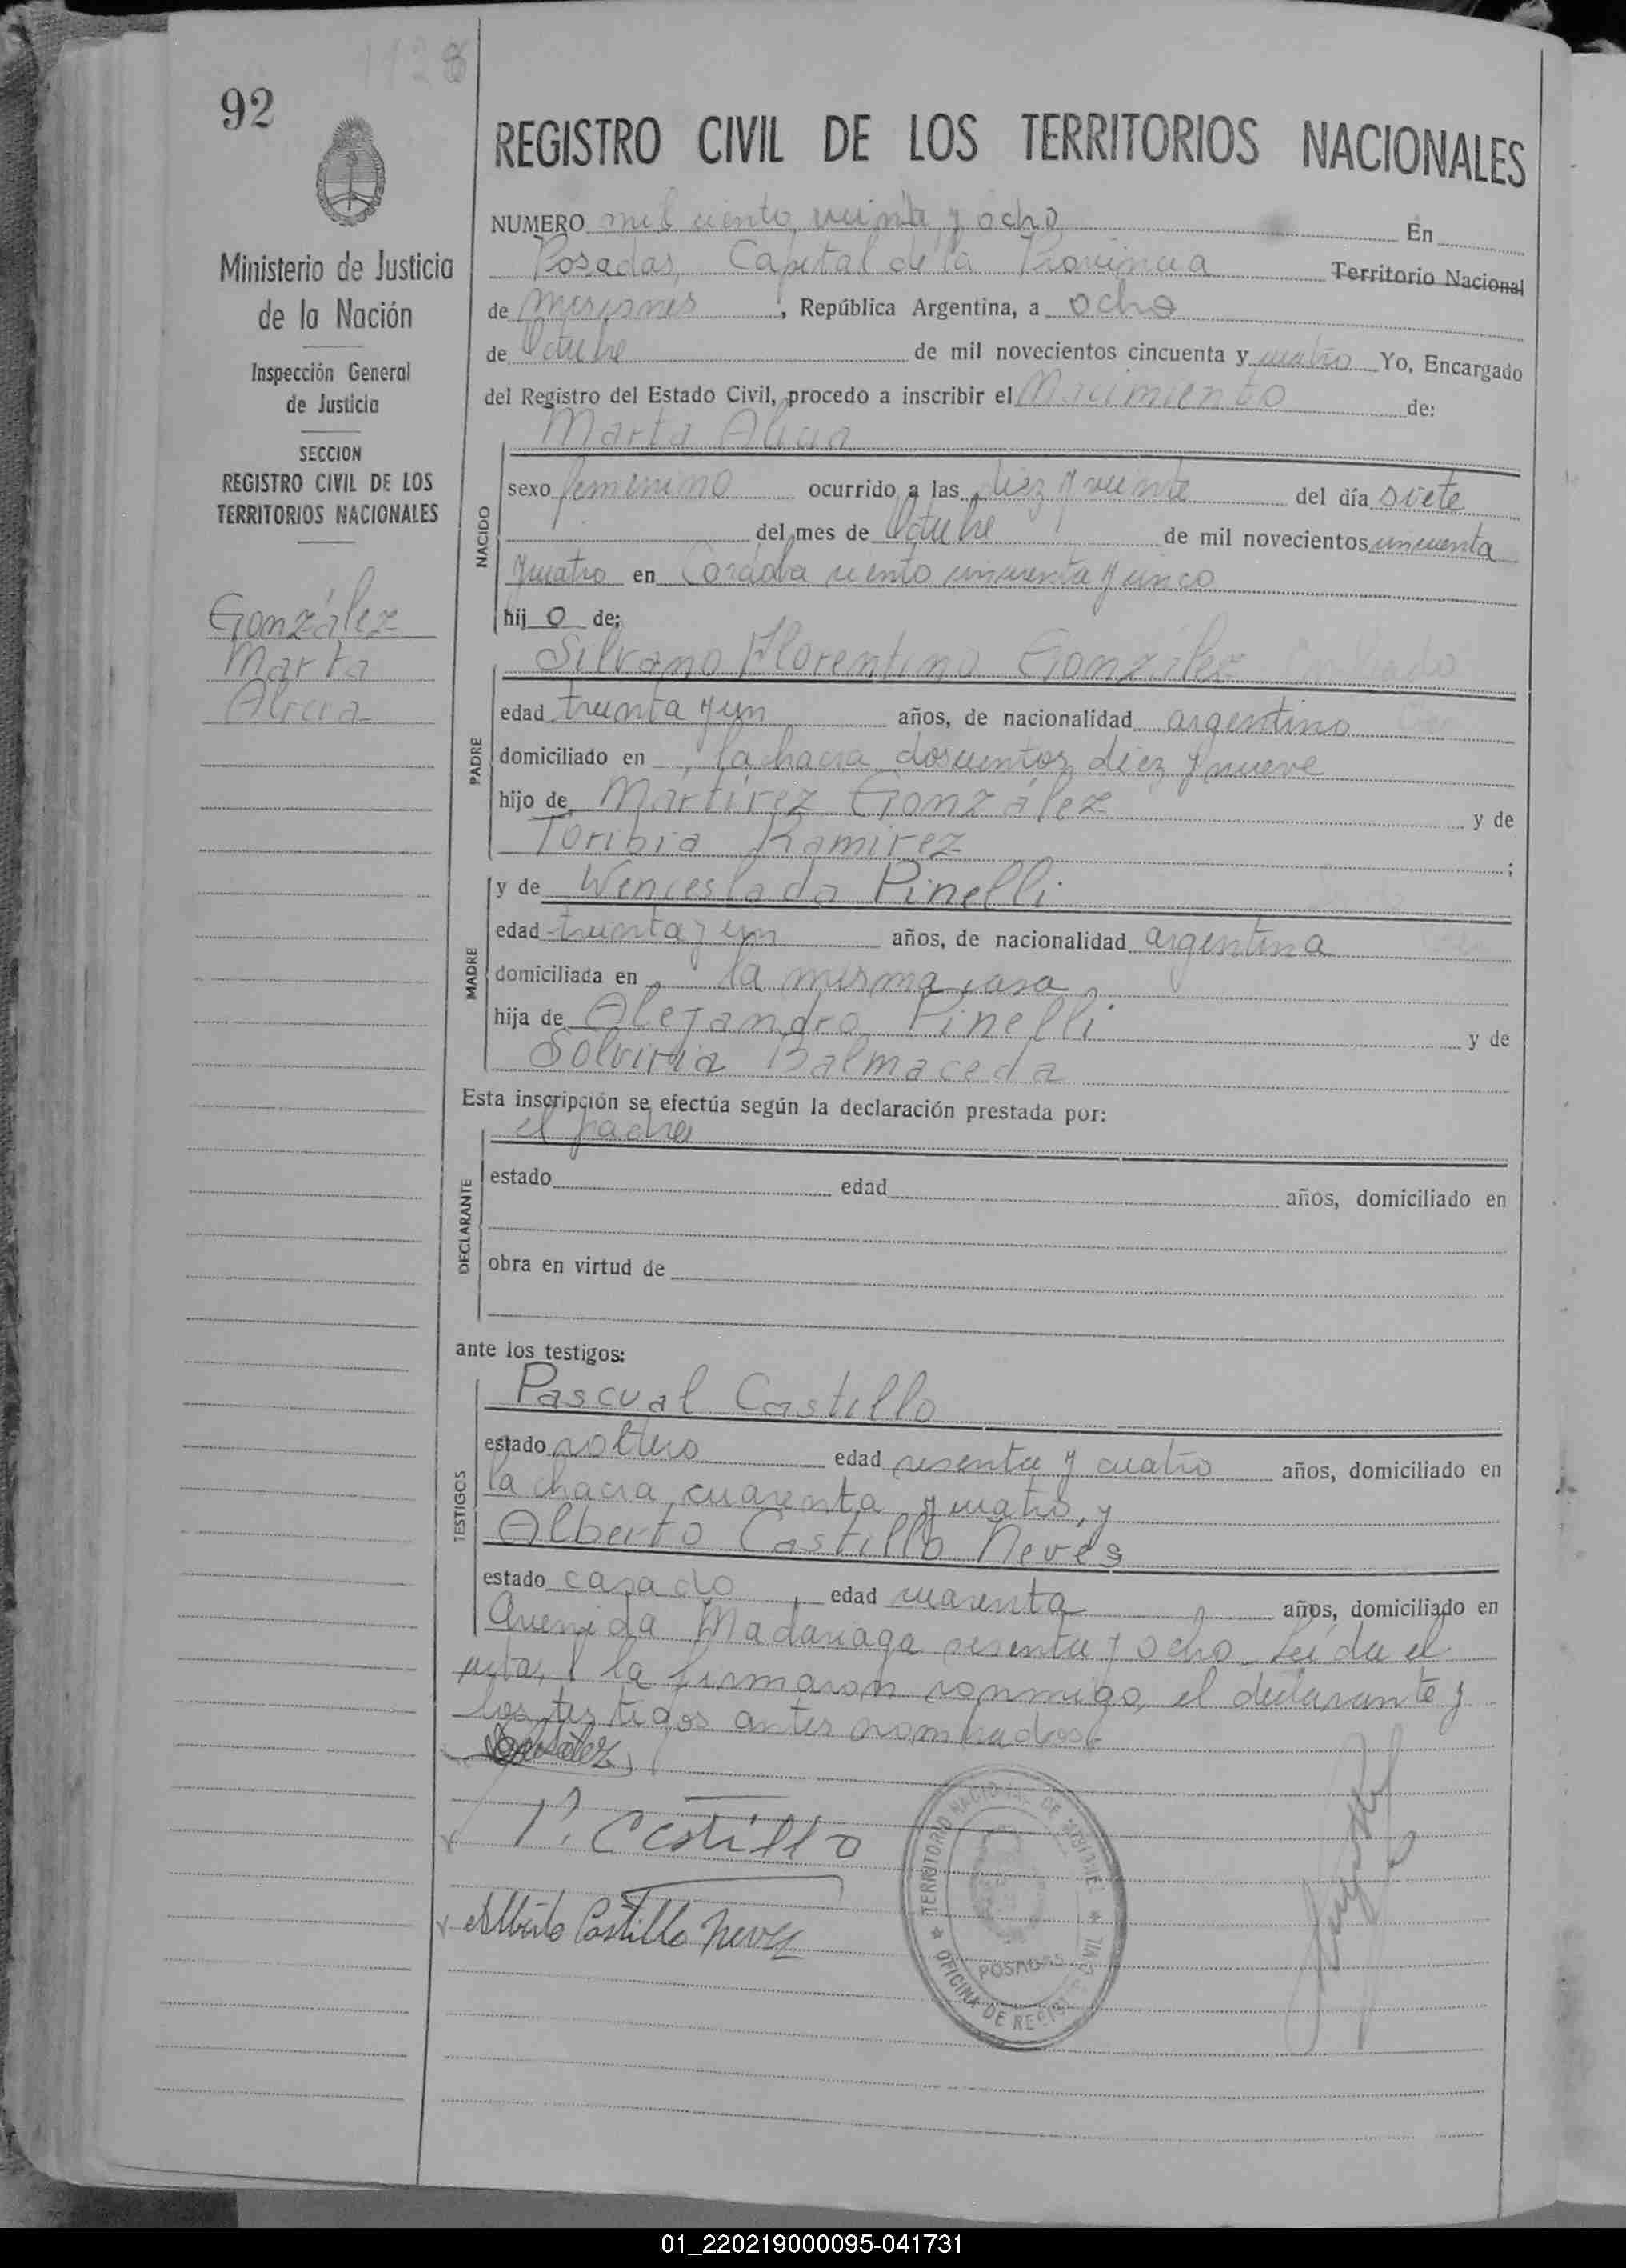 1128
92
REGISTRO CIVIL DE LOS TERRITORIOS NACIONALES
Ministerio de Justicia
de la Nación
Inspección General
de Justicia
SECCION
REGISTRO CIVIL DE LOS
TERRITORIOS NACIONALES
González
Marta
Alicia
NUMERO mil ciento veinte y ocho En
Posadas, Capital de la Provincia Territorio Nacional
de Misiones, República Argentina, a ocho
de Octubre de mil novecientos cincuenta y cuatro Yo, Encargado
del Registro del Estado Civil, procedo a inscribir el Nacimiento de:
NACIDO
Marta Alicia
sexo femenino ocurrido a las diez y veinte del día siete
del mes de Octubre de mil novecientos cincuenta
y cuatro en Córdoba ciento cincuenta y cinco
hij o de:
PADRE
Silvano Florentino González
edad treinta y un años, de nacionalidad argentino
domiciliado en la chacra doscientos diez y nueve
hijo de Martirez González y de
Toribia Ramirez ;
MADRE
y de Wenceslada Pinelli
edad treinta y un años, de nacionalidad argentina
domiciliada en la misma casa
hija de Alejandro Pinelli y de
Balmaceda
Esta inscripción se efectúa según la declaración prestada por:
DECLARANTE
el padre
estado edad años, domiciliado en
obra en virtud de
ante los testigos:
TESTIGOS
Pascual Castillo
estado soltero edad sesenta y cuatro años, domiciliado en
la chacra cuarenta y cuatro, y
Alberto Castillo Neves
estado casado, edad cuarenta años, domiciliado en
Avenida Madariaga sesenta y ocho. Leída el
acta, la firmaron conmigo, el declarante y
los testigos antes nombrados
P. Castillo
Alberto Castillo Neves
TERRITORIO NACIONAL DE MISIONES
OFICINA DE REGISTRO CIVIL
POSADAS
01_220219000095-041731